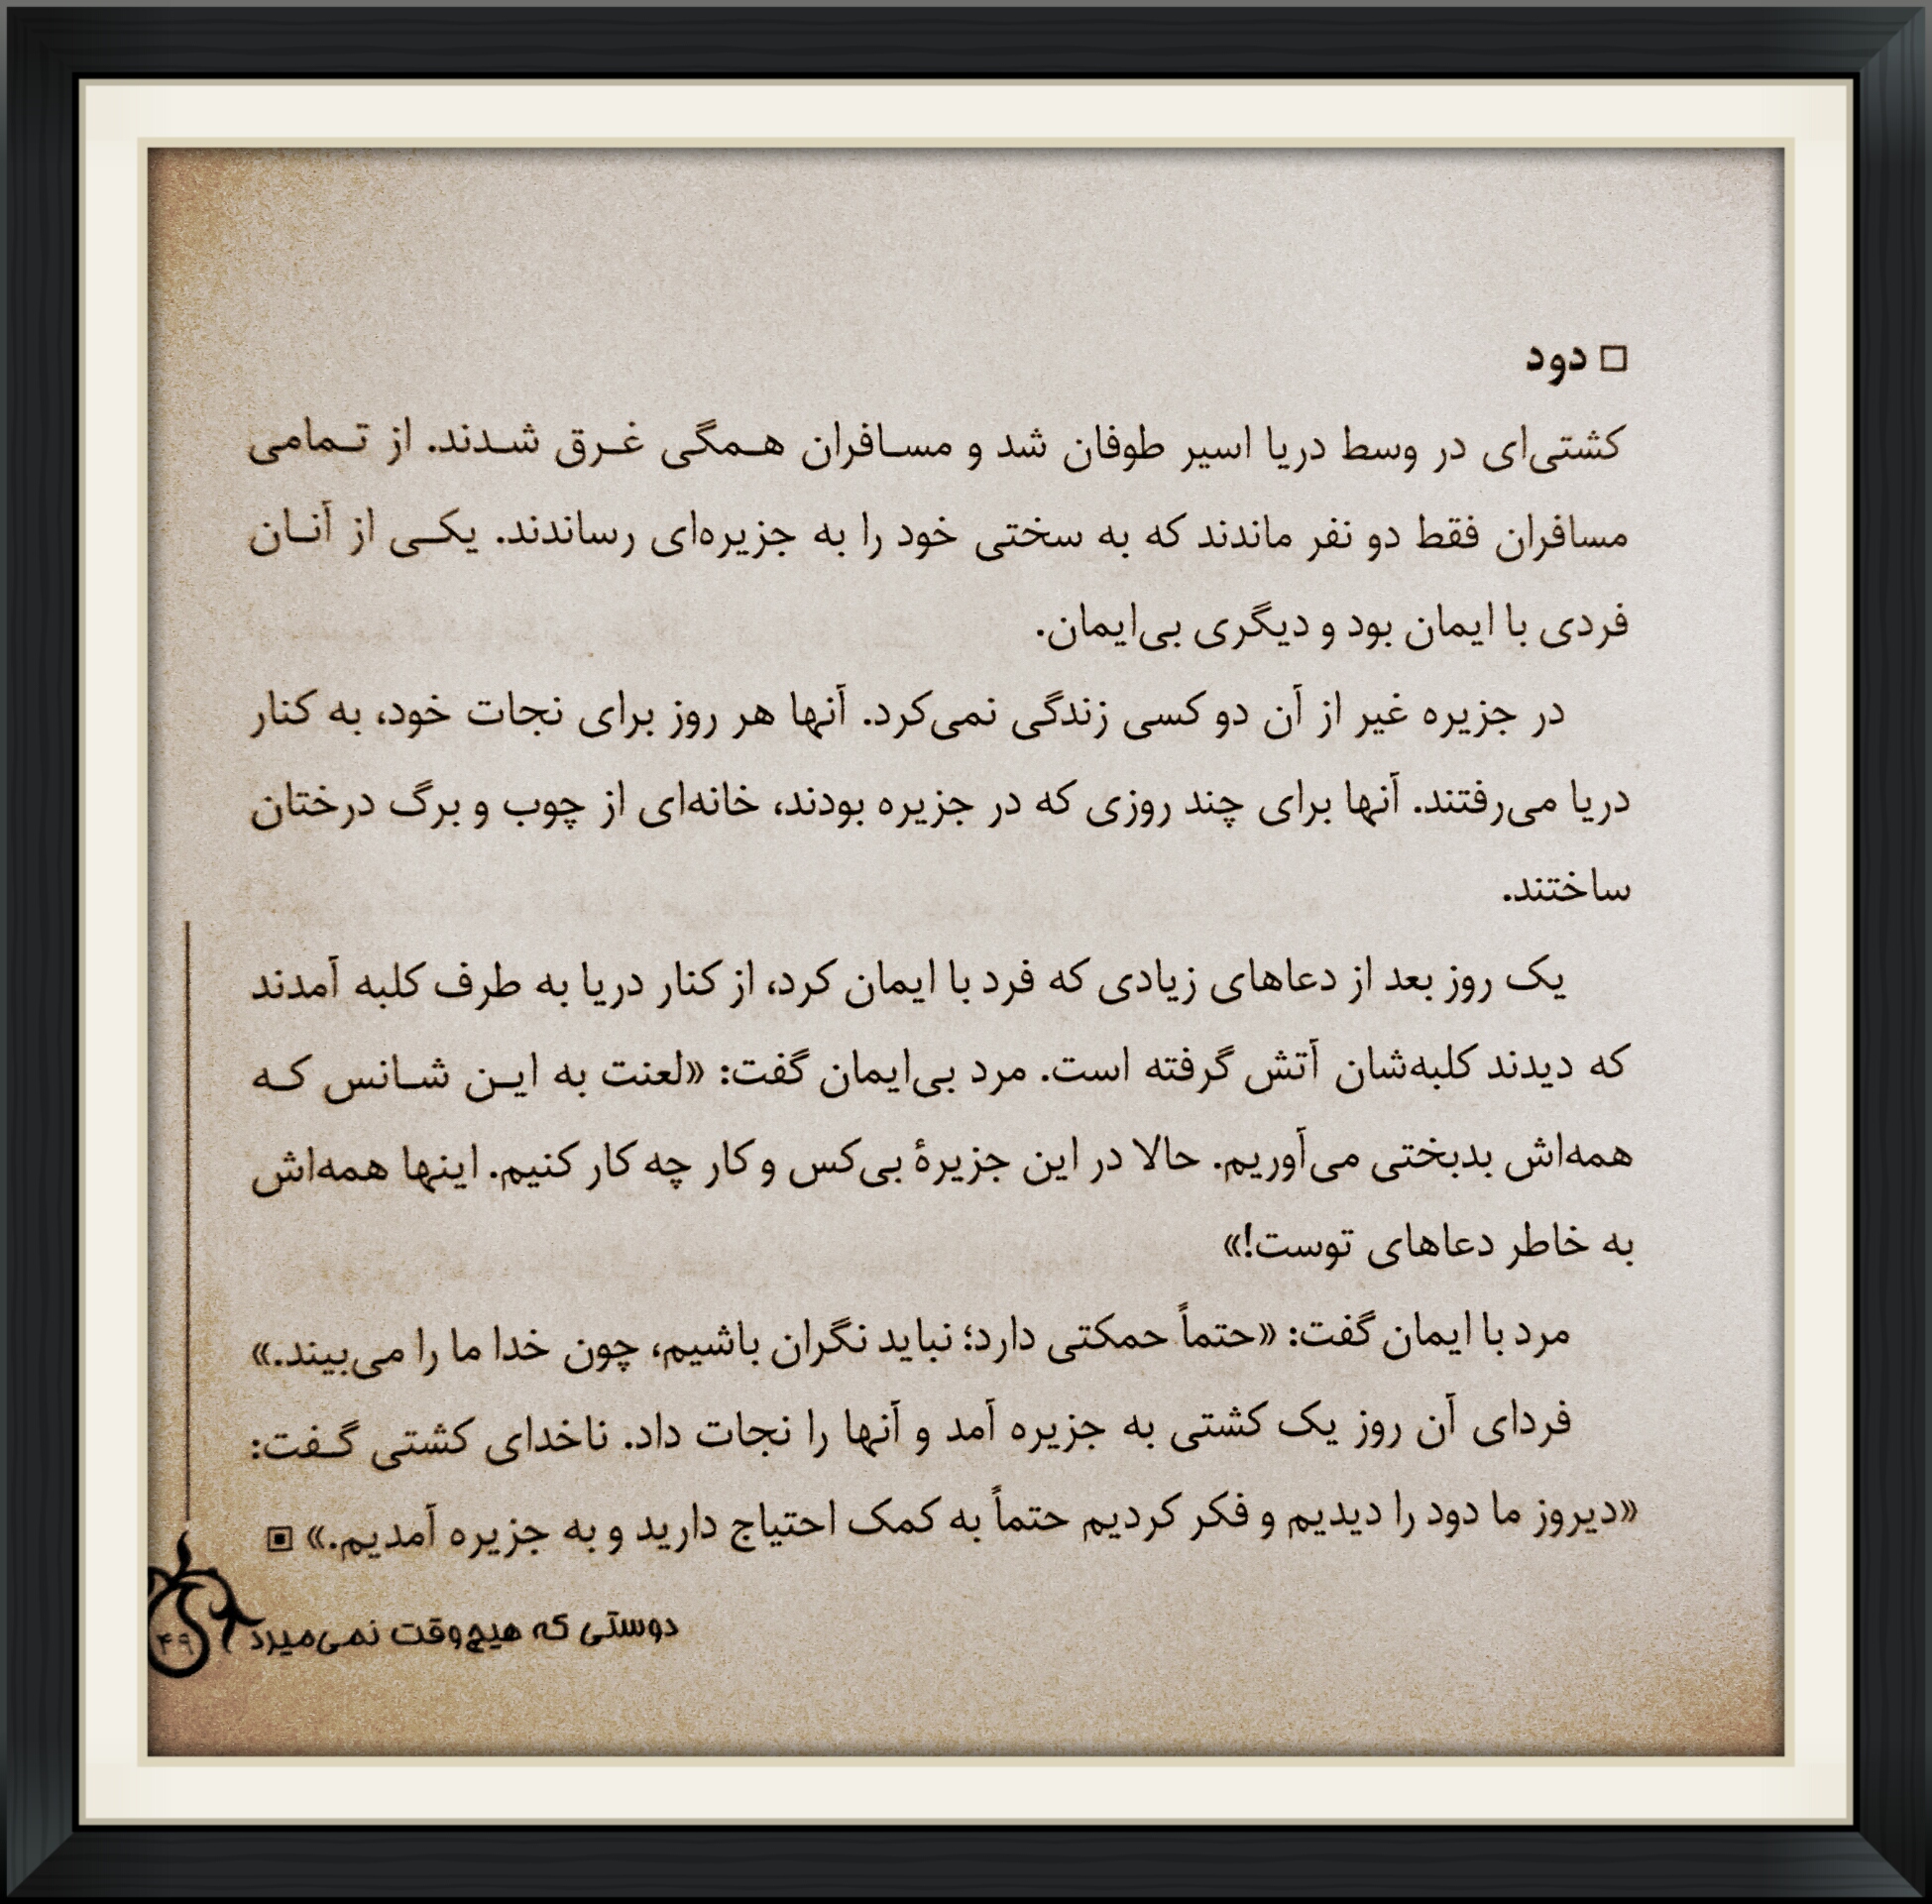 □ دود
کشتی‌ای در وسط دریا اسیر طوفان شد و مسـافران هـمگی غـرق شـدند. از تـمامی
مسافران فقط دو نفر ماندند که به سختی خود را به جزیره‌ای رساندند. یکـی از آنـان
فردی با ایمان بود و دیگری بی‌ایمان.
در جزیره غیر از آن دو کسی زندگی نمی‌کرد. آنها هر روز برای نجات خود، به کنار
دریا می‌رفتند. آنها برای چند روزی که در جزیره بودند، خانه‌ای از چوب و برگ درختان
ساختند.
یک روز بعد از دعاهای زیادی که فرد با ایمان کرد، از کنار دریا به طرف کلبه آمدند
که دیدند کلبه‌شان آتش گرفته است. مرد بی‌ایمان گفت: «لعنت به ایـن شـانس کـه
همه‌اش بدبختی می‌آوریم. حالا در این جزیرهٔ بی‌کس و کار چه کار کنیم. اینها همه‌اش
به خاطر دعاهای توست!»
مرد با ایمان گفت: «حتماً حمکتی دارد؛ نباید نگران باشیم، چون خدا ما را می‌بیند.»
فردای آن روز یک کشتی به جزیره آمد و آنها را نجات داد. ناخدای کشتی گـفت:
«دیروز ما دود را دیدیم و فکر کردیم حتماً به کمک احتیاج دارید و به جزیره آمدیم.» ▣
دوستی که هیچ‌وقت نمی‌میرد
۴۹